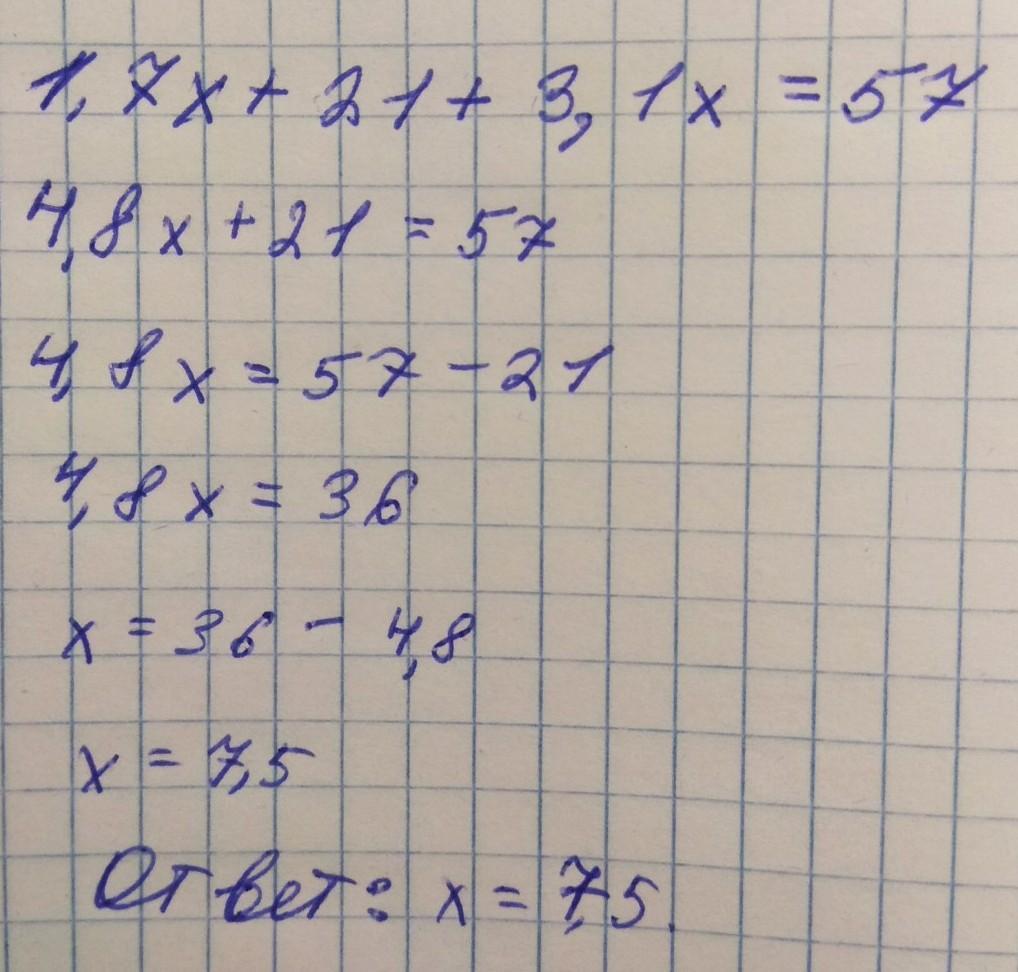 1,7x + 21 + 3,1x = 57
4,8x + 21 = 57
4,8x = 57 - 21
4,8x = 36
x = 36 - 4,8
x = 7,5
Ответ: x = 7,5.